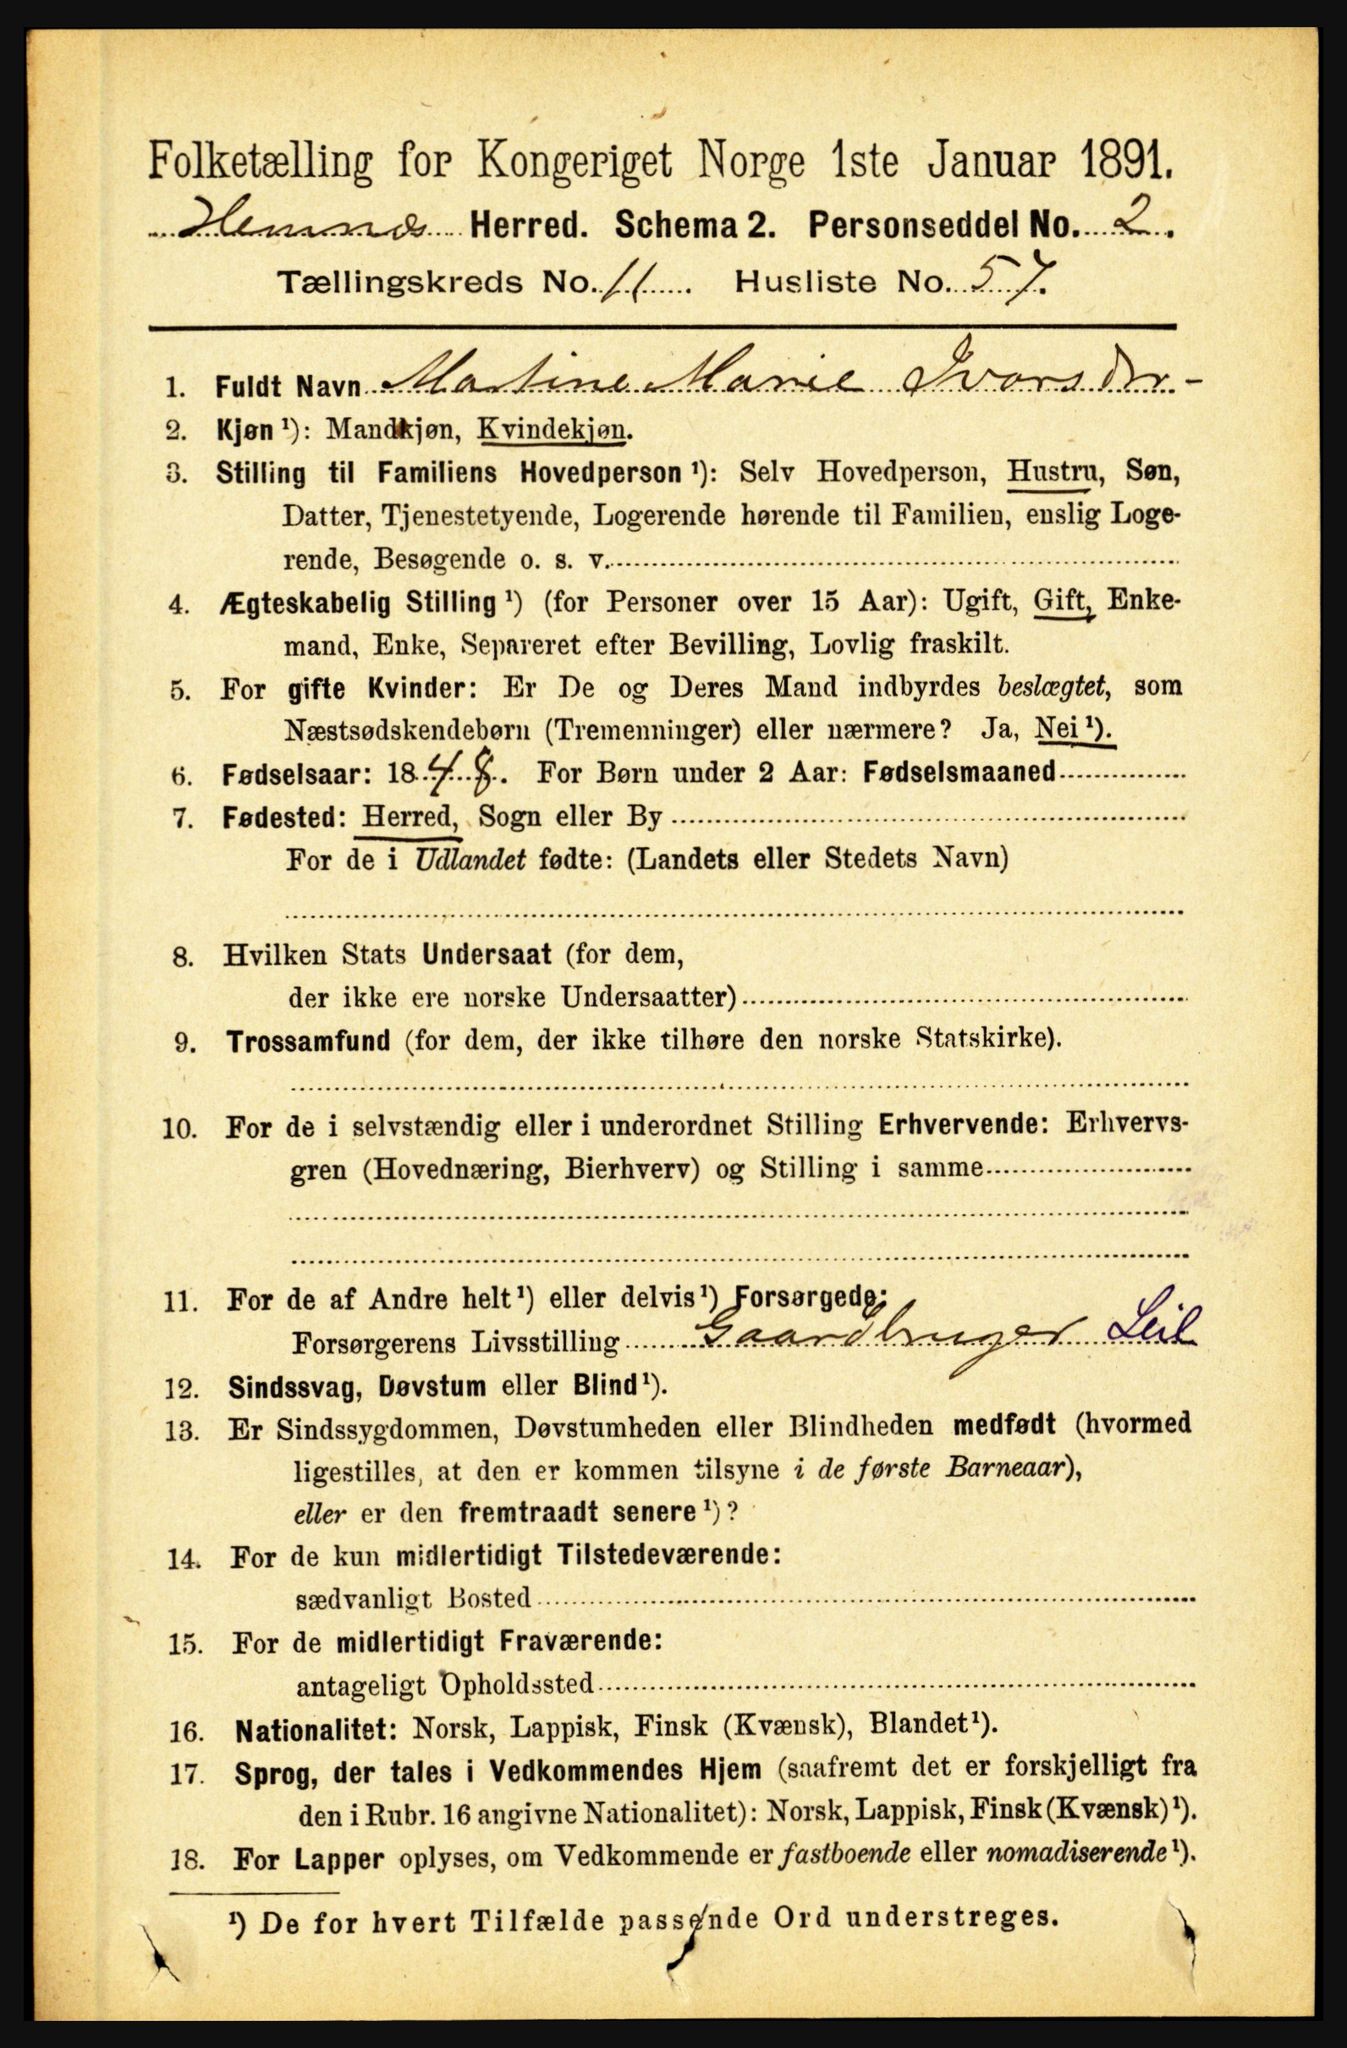 Folketælling for Kongeriget Norge 1ste Januar 1891.
Hemnæs Herred. Schema 2. Personseddel No. 2.
Tællingskreds No. 11. Husliste No. 57.
1. Fuldt Navn Martine Marie Ivarsdtr.
2. Kjøn ¹): Mandkjøn, Kvindekjøn.
3. Stilling til Familiens Hovedperson ¹): Selv Hovedperson, Hustru, Søn,
Datter, Tjenestetyende, Logerende hørende til Familien, enslig Loge-
rende, Besøgende o. s. v.
4. Ægteskabelig Stilling ¹) (for Personer over 15 Aar): Ugift, Gift, Enke-
mand, Enke, Separeret efter Bevilling, Lovlig fraskilt.
5. For gifte Kvinder: Er De og Deres Mand indbyrdes beslægtet, som
Næstsødskendebørn (Tremenninger) eller nærmere? Ja, Nei ¹).
6. Fødselsaar: 1848. For Børn under 2 Aar: Fødselsmaaned
7. Fødested: Herred, Sogn eller By
For de i Udlandet fødte: (Landets eller Stedets Navn)
8. Hvilken Stats Undersaat (for dem,
der ikke ere norske Undersaatter)
9. Trossamfund (for dem, der ikke tilhøre den norske Statskirke).
10. For de i selvstændig eller i underordnet Stilling Erhvervende: Erhvervs-
gren (Hovednæring, Bierhverv) og Stilling i samme
11. For de af Andre helt ¹) eller delvis ¹) Forsørgede:
Forsørgerens Livsstilling Gaardbruger Leil
12. Sindssvag, Døvstum eller Blind ¹).
13. Er Sindssygdommen, Døvstumheden eller Blindheden medfødt (hvormed
ligestilles, at den er kommen tilsyne i de første Barneaar),
eller er den fremtraadt senere ¹)?
14. For de kun midlertidigt Tilstedeværende:
sædvanligt Bosted
15. For de midlertidigt Fraværende:
antageligt Opholdssted
16. Nationalitet: Norsk, Lappisk, Finsk (Kvænsk), Blandet ¹).
17. Sprog, der tales i Vedkommendes Hjem (saafremt det er forskjelligt fra
den i Rubr. 16 angivne Nationalitet): Norsk, Lappisk, Finsk (Kvænsk) ¹).
18. For Lapper oplyses, om Vedkommende er fastboende eller nomadiserende ¹).
¹) De for hvert Tilfælde passende Ord understreges.